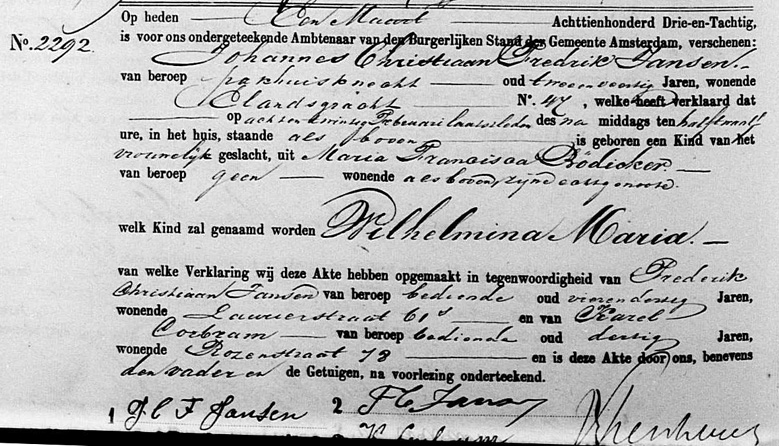 Op heden Een Maart Achttienhonderd Drie-en-Tachtig,
No. 2292 is voor ons ondergeteekende Ambtenaar van den Burgerlijken Stand der Gemeente Amsterdam, verschenen:
Johannes Christiaan Fredrik Jansen
van beroep pakhuisknecht oud twee en veertig Jaren, wonende
Elandsgracht No. 47, welke heeft verklaard dat
op acht en twintig Februari laatstleden des na middags ten half twaalf
ure, in het huis, staande als boven is geboren een Kind van het
vrouwelijk geslacht, uit Maria Francisca Rödicker
van beroep geen wonende als boven, zijne echtgenoote.
welk Kind zal genaamd worden Wilhelmina Maria.
van welke Verklaring wij deze Akte hebben opgemaakt in tegenwoordigheid van Frederik
Christiaan Jansen van beroep bediende oud vier en dertig Jaren,
wonende Laurierstraat 61 en van Karel
van beroep bediende oud dertig Jaren,
wonende Rozenstraat 78 en is deze Akte door ons, benevens
den vader en de Getuigen, na voorlezing onderteekend.
1 J C F Jansen 2 F C Jansen